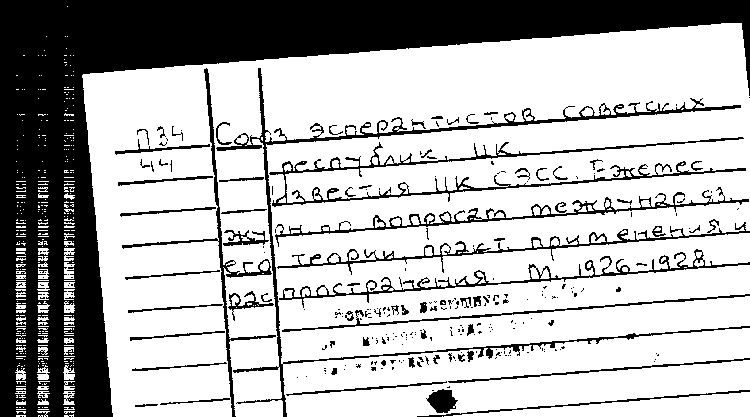 П34 Союз эсперантистов советских
44 республик. ЦК.
Известия ЦК СЭСС. Ежемес.
журн. по вопросам междунар. яз.,
его теории, практ. применения и
распространения. М., 1926-1928.